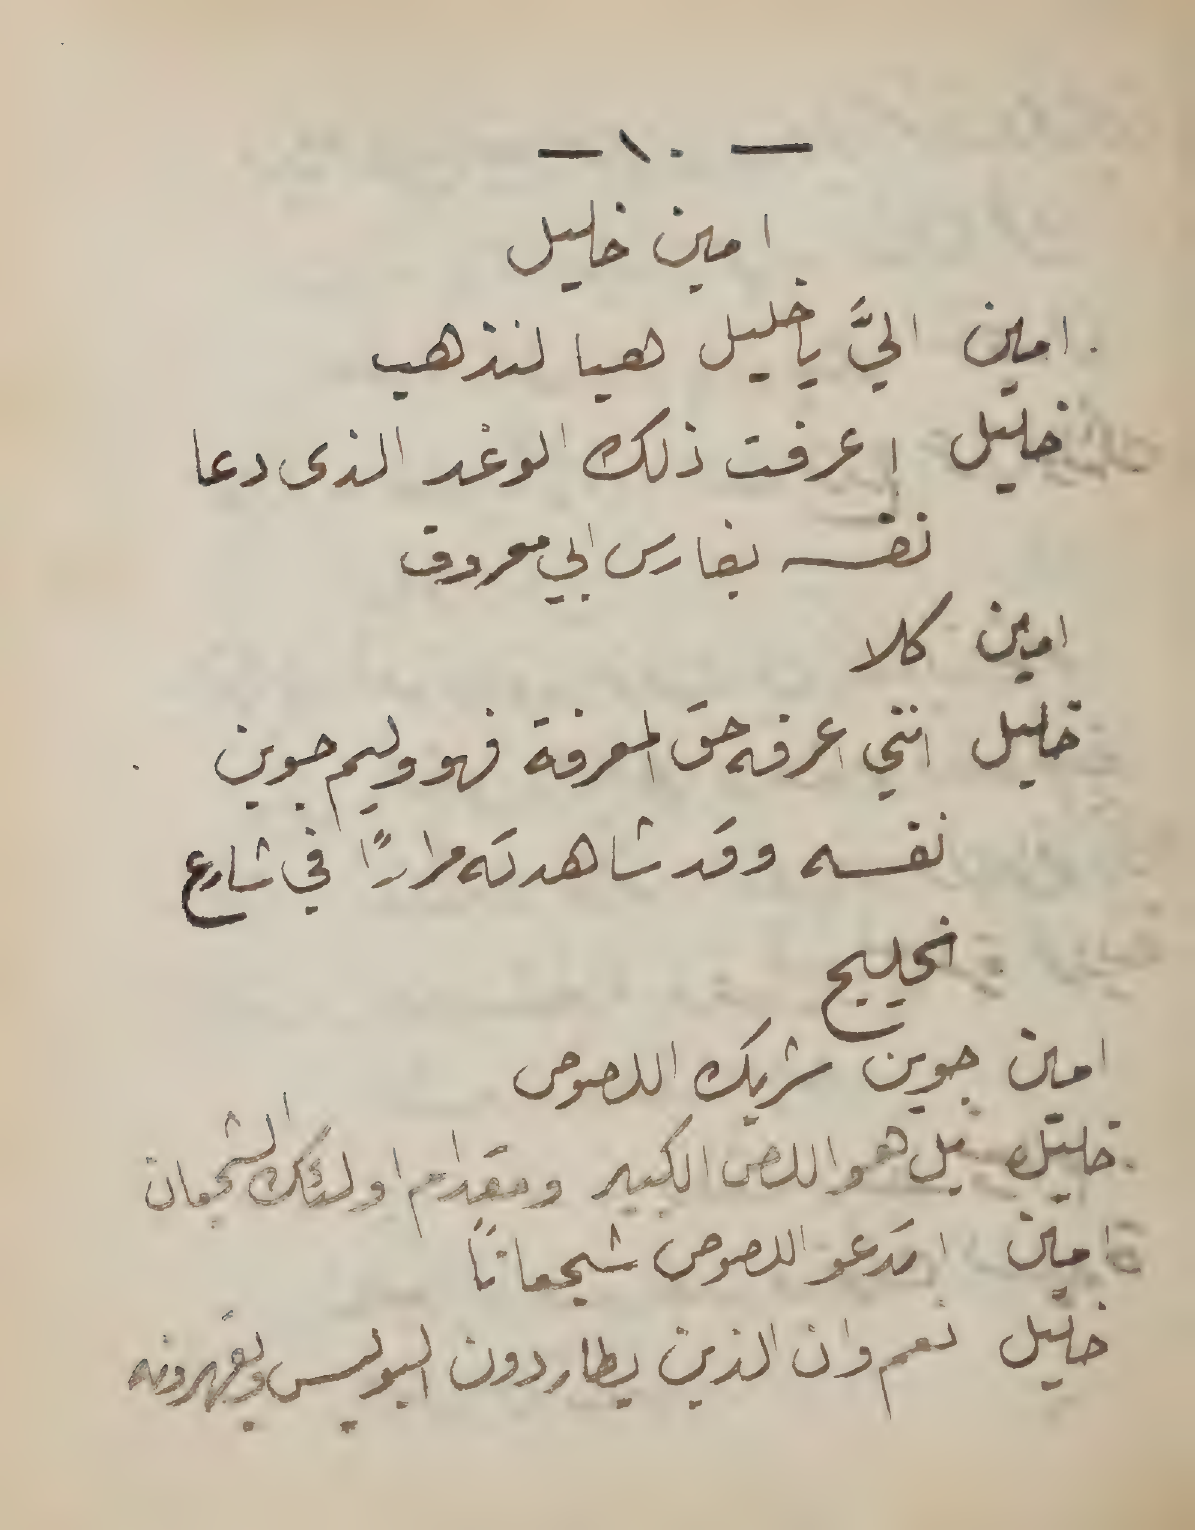 — ١٠ —
امين خليل
امين اليَّ يا خليل هيا لنذهب
خليل اعرفت ذلك الوغد الذى دعا
نفسه بفارس ابي معروف
امين كلا
خليل انني اعرفه حق المعرفة فهو وليم جوين
نفسه وقد شاهدته مرارًا في شارع
الخليج
امين جوين شريك اللصوص
خليل بل هو اللص الكبير ومقدام اولئك الشجعان
امين اتدعو اللصوص شجعانًا
خليل نعم وان الذين يطاردون البوليس ويقهرونه